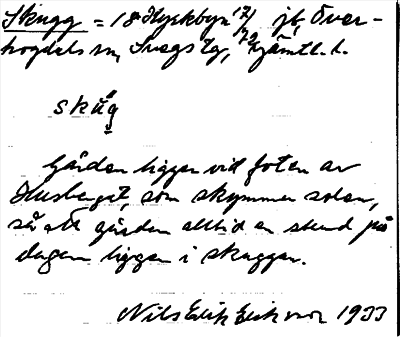 Skugg = 18 Ryckbyn 17/72 jb, Över-
hogdals sn, Svegs tg, Jämtl. l.
skug
Gården ligger vid foten av
Husberget, som skymmer solen,
så att gården alltid en stund på
dagen ligger i skuggan.
Nils Erik Eriksson 1933